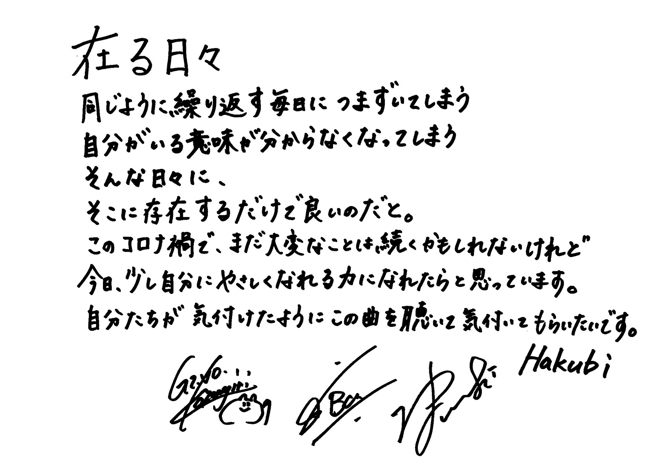 在る日々
同じように繰り返す毎日に つまずいてしまう
自分がいる意味が分からなくなってしまう
そんな日々に、
そこに存在するだけで良いのだと。
このコロナ禍で、まだ大変なことは続くかもしれないけれど
今日、少し自分にやさしくなれる力になれたらと思っています。
自分たちが 気付けたようにこの曲を聴いて気付いてもらいたいです。
Hakubi